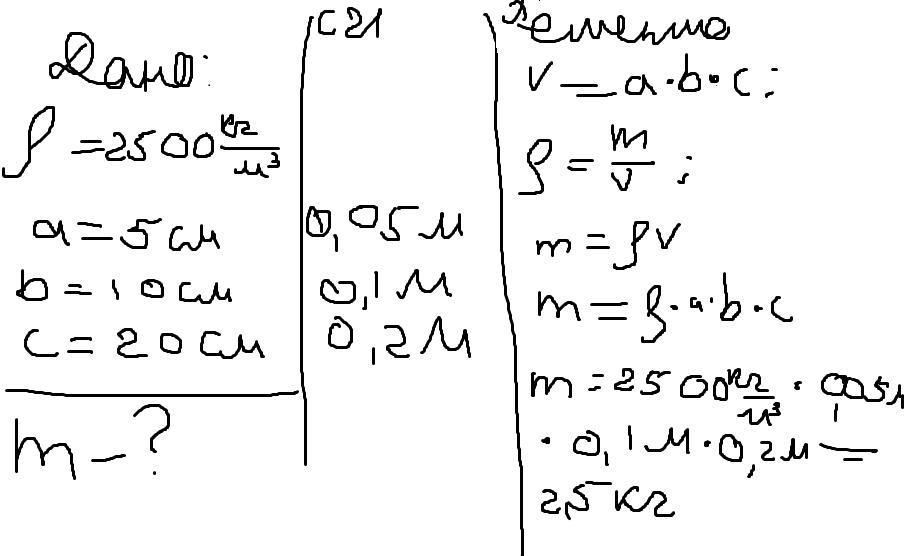 Дано:
ρ = 2500 кг/м³
a = 5 см
b = 10 см
c = 20 см
m – ?
СИ
0,05 м
0,1 м
0,2 м
Решение
V = a · b · c;
ρ = m/V;
m = ρV
m = ρ · a · b · c
m = 2500 кг/м³ · 0,05 м
· 0,1 м · 0,2 м =
2,5 кг